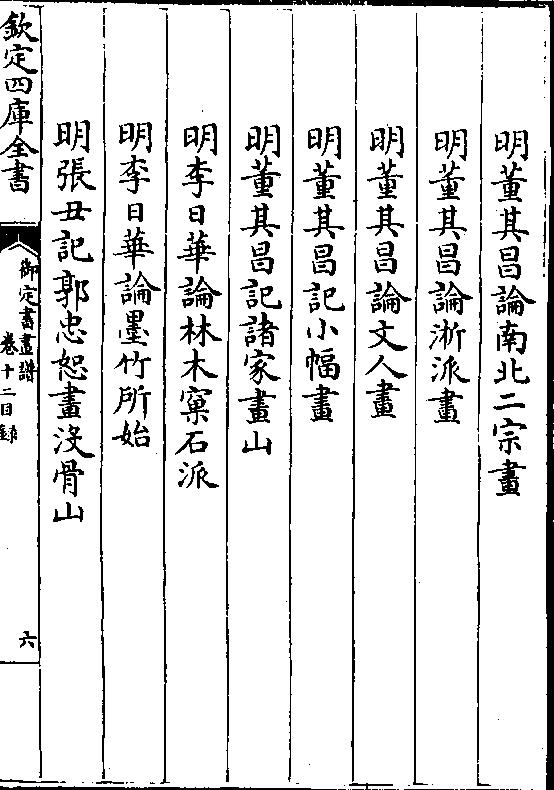 明董其昌論南北二宗畫
明董其昌論浙派畫
明董其昌論文人畫
明董其昌記小幅畫
明董其昌記諸家畫山
明李日華論林木窠石派
明李日華論墨竹所始
明張丑記郭忠恕畫沒骨山
欽定四庫全書
御定書畫譜
卷十二目錄
六